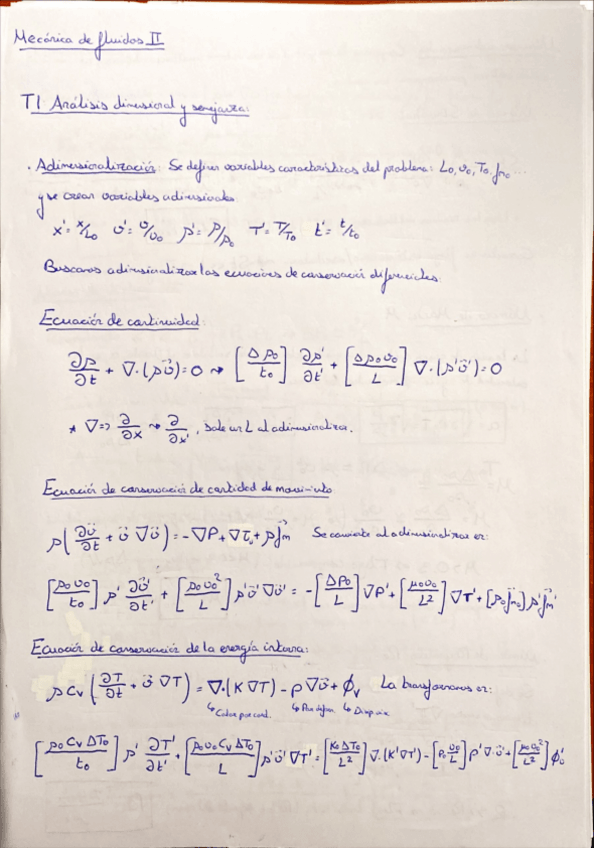 Mecánica de fluidos II
T1 Análisis dimensional y semejanza:
· Adimensionalización: Se definen variables características del problema: L₀, v₀, T₀, fm₀ ...
y se crean variables adimensionales
x' = x/L₀ v' = v/v₀ ρ' = ρ/ρ₀ T' = T/T₀ t' = t/t₀
Buscamos adimensionalizar las ecuaciones de conservación diferenciales:
Ecuación de continuidad:
∂ρ/∂t + ∇·(ρv⃗) = 0 ⇝ [Δρ₀/t₀] ∂ρ'/∂t' + [Δρ₀v₀/L] ∇·(ρ'v⃗') = 0
* ∇ => ∂/∂x ⇝ ∂/∂x', sale un L al adimensionalizar.
Ecuación de conservación de cantidad de movimiento
ρ(∂v⃗/∂t + v⃗ ∇v⃗) = -∇P + ∇τ + ρf⃗m Se convierte al adimensionalizar en:
[ρ₀v₀/t₀] ρ' ∂v⃗'/∂t' + [ρ₀v₀²/L] ρ'v⃗'∇v⃗' = -[ΔP₀/L] ∇P' + [μ₀v₀/L²] ∇τ' + [ρ₀fm₀] ρ'f⃗m'
Ecuación de conservación de la energía interna:
ρ Cv (∂T/∂t + v⃗ ∇T) = ∇·(K ∇T) - P ∇v⃗ + ϕv La transformamos en:
↳ Calor por cond. ↳ Por defor. ↳ Disp. visc.
[ρ₀ Cv ΔT₀/t₀] ρ' ∂T'/∂t' + [ρ₀v₀ Cv ΔT₀/L] ρ'v⃗' ∇T' = [K₀ΔT₀/L²] ∇·(K'∇T') - [P₀ v₀/L] P'∇·v⃗' + [μ₀v₀²/L²] ϕv'